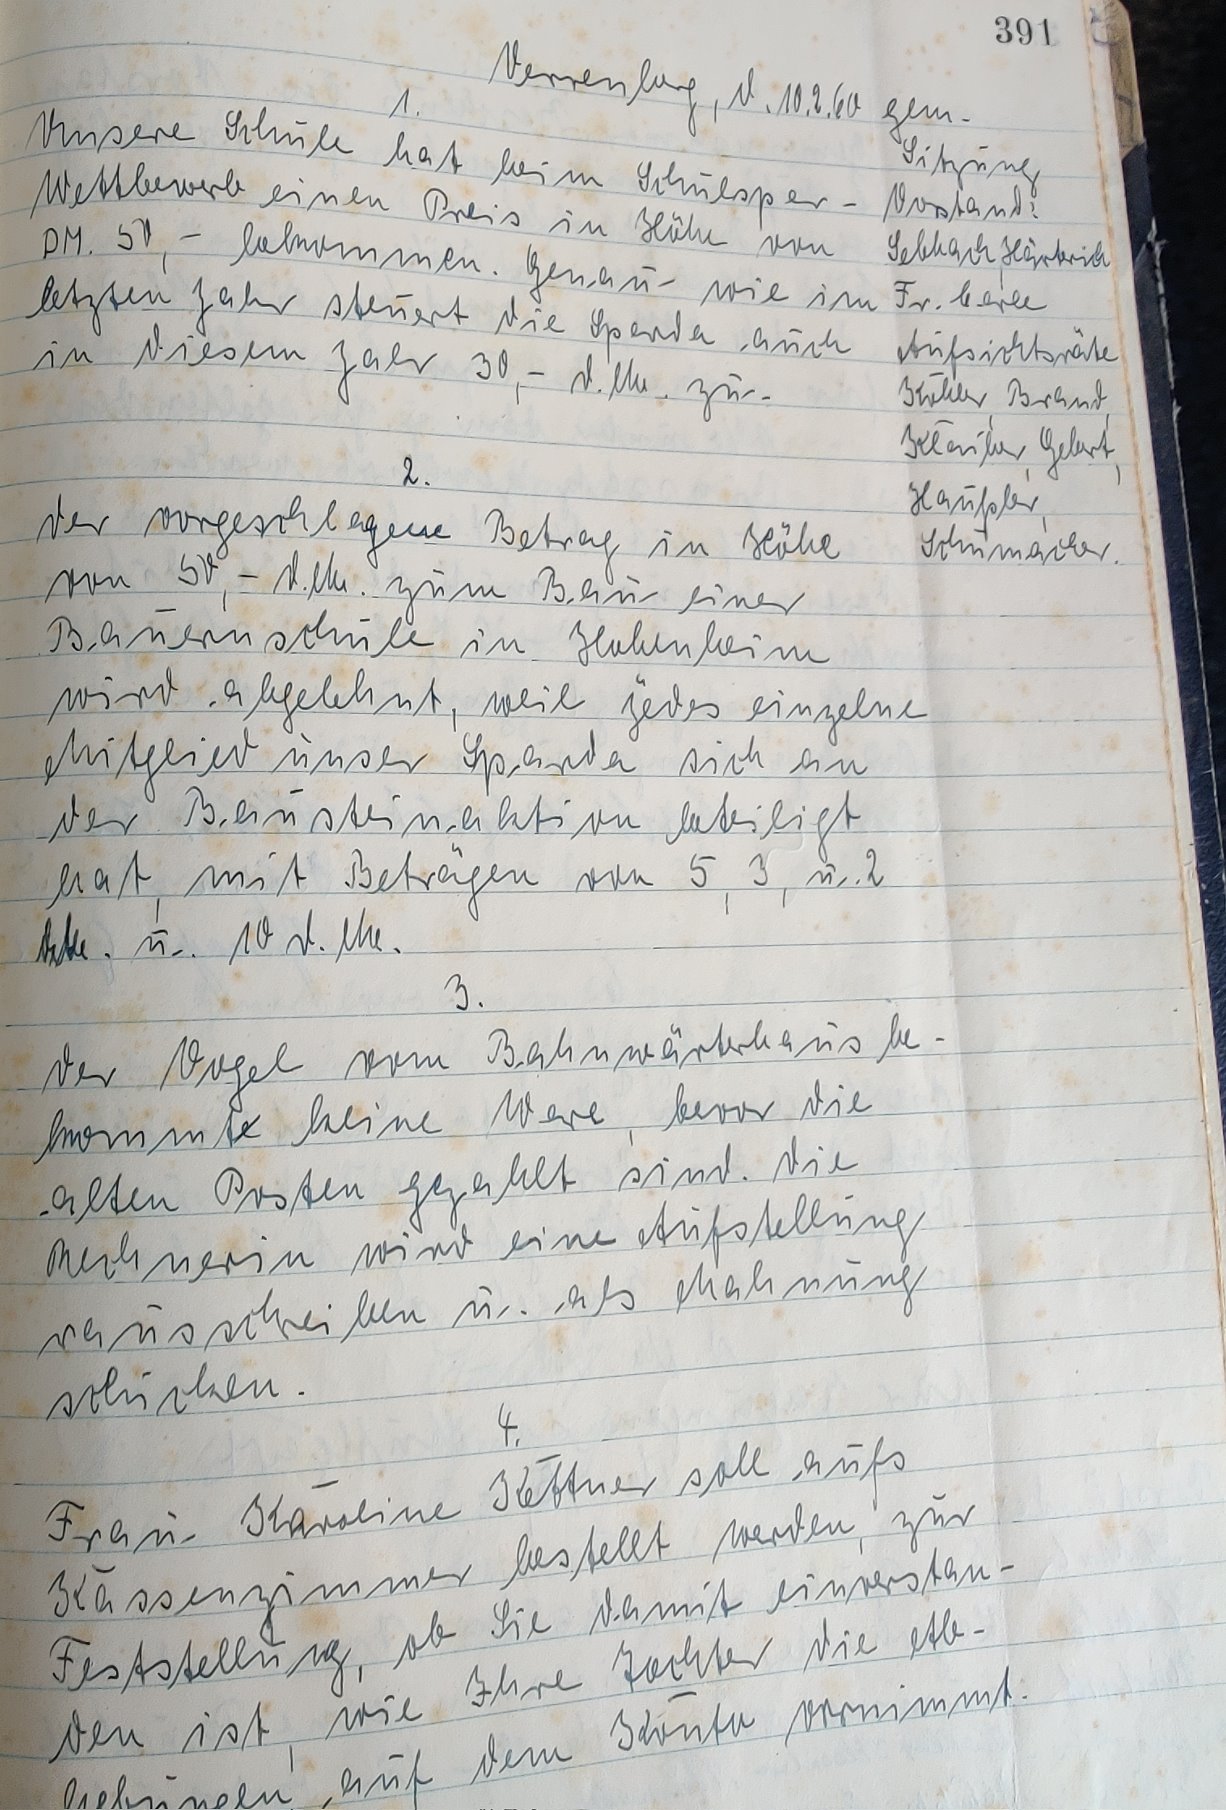 391
Verrenberg, d. 10.2.60
1.
Unsere Schule hat beim Schulspar-
Wettbewerb einen Preis in Höhe von
DM. 50,- bekommen. Genau wie im
letzten Jahr steuert die Sparda auch
in diesem Jahr 30,- d.Mk. zu.
2.
der vorgeschlagene Betrag in Höhe
von 50,- d.Mk. zum Bau einer
Bauernschule in Hohenheim
wird abgelehnt, weil jedes einzelne
Mitglied unser Sparda sich an
der Bausteinaktion beteiligt
hat, mit Beträgen von 5, 3, u. 2
u. 10 d. Mk.
3.
der Vogel vom Bahnwärterhaus be-
kommte keine Ware, bevor die
alten Posten gezahlt sind. die
Rechnerin wird eine Aufstellung
rausschreiben u. als Mahnung
schicken.
4.
Frau Karoline Kettner soll aufs
Kassenzimmer bestellt werden, zur
Feststellung, ob Sie damit einverstan-
den ist, wie Ihre Tochter die Abe-
hebungen auf dem Konto vornimmt.
gem.
Sitzung
Vorstand:
Härterich
Fr.
Aufsichtsräte
Köhler, Brand,
Kläiber, Gebert,
Häußler,
Schumacher.